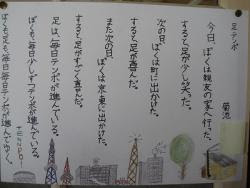 足テンポ
菊池
今日、ぼくは親友の家へ行った。
すると、足が少し笑った。
次の日、ぼくは町に出かけた。
すると、足が喜んだ。
また次の日、ぼくは東京に出かけた。
すると、足がすごく喜んだ。
足は、毎日テンポが進んでいる。
ぼくも、毎日少しずつテンポが進んでいる。
ぼくも足も、毎日毎日テンポが進んでゆく。
TENNPO!